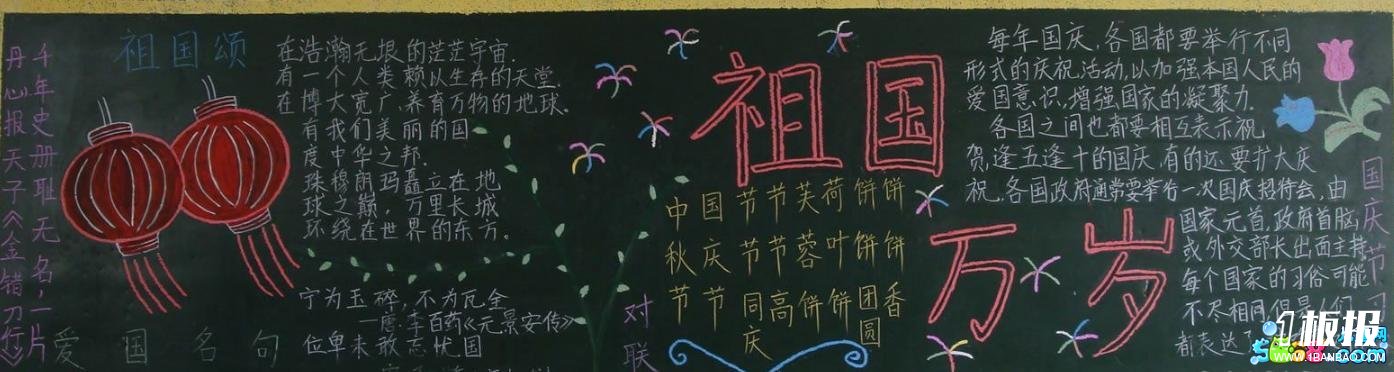 千年史册耻无名，一片
丹心报天子《金错刀行》
祖国颂
在浩瀚无垠的茫茫宇宙.
有一个人类赖以生存的天堂.
在博大宽广、养育万物的地球.
有我们美丽的国
度中华之邦.
珠穆朗玛矗立在地
球之巅，万里长城
环绕在世界的东方。
爱国名句
宁为玉碎，不为瓦全
—唐·李百药《元景安传》
位卑未敢忘忧国
祖国
万岁
对联
中秋节
国庆节
节节同庆
节节高
芙蓉饼
荷叶饼
饼饼团圆
饼饼香
每年国庆，各国都要举行不同
形式的庆祝活动，以加强本国人民的
爱国意识，增强国家的凝聚力.
各国之间也都要相互表示祝
贺，逢五逢十的国庆，有的还要扩大庆
祝.各国政府通常要举行一次国庆招待会，由
国家元首，政府首脑，
或外交部长出面主持，
每个国家的习俗可能
不尽相同
都表达
国庆节
1板报
WWW.1BANBAO.COM